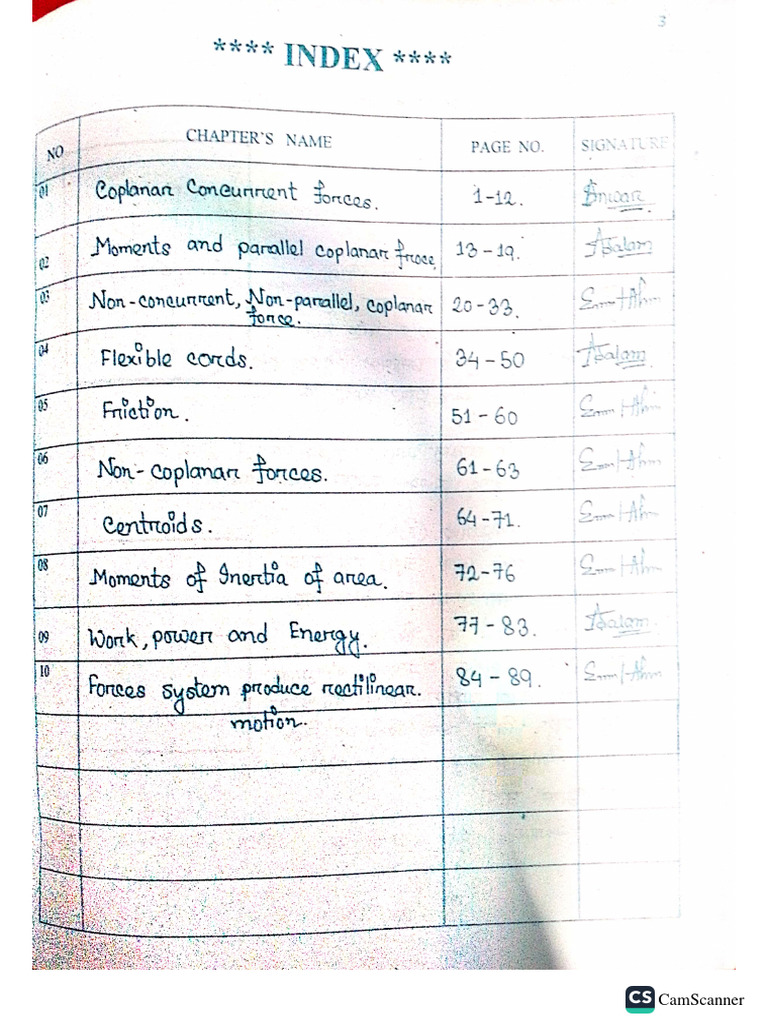 3
**** INDEX ****
NO CHAPTER'S NAME PAGE NO. SIGNATURE
01 Coplanar Concurrent forces. 1-12.
02 Moments and parallel coplanar froce 13-19. Asalam
03 Non-concurrent, Non-parallel, coplanar 20-33.
force.
04 Flexible cords. 34-50 Asalam
05 Friction. 51-60
06 Non-coplanar forces. 61-63
07 Centroids. 64-71.
08 Moments of Inertia of area. 72-76
09 Work, power and Energy. 77-83. Asalam
10 Forces system produce rectilinear. 84-89.
motion.
CS CamScanner